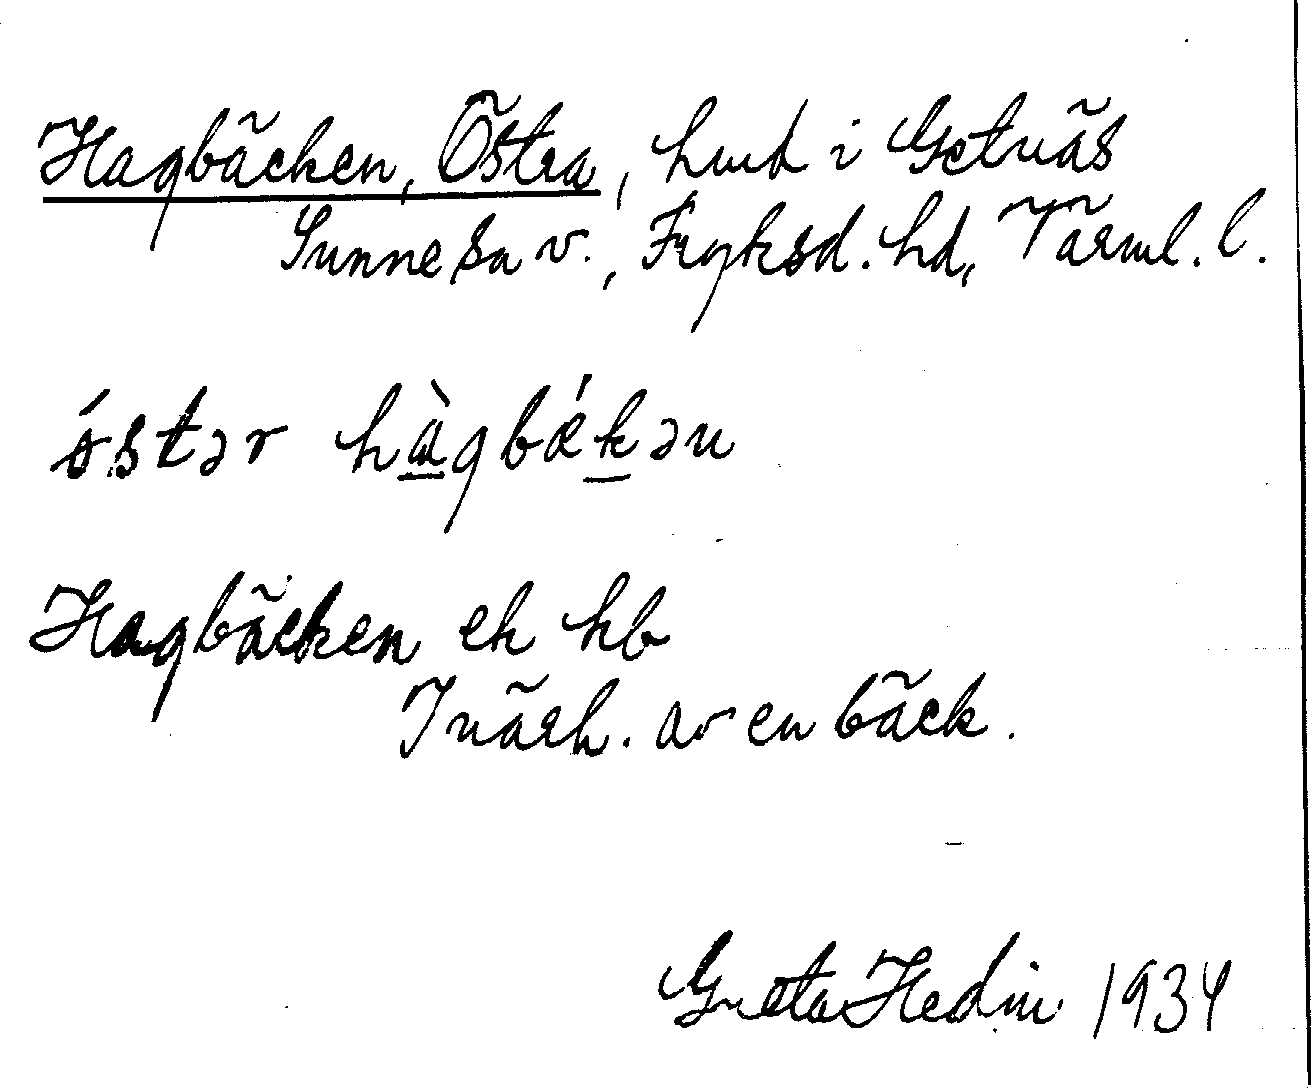 Hagbäcken, Östra, hmd i Getnäs
Sunne sn v., Fryksd. hd, Värml. l.
ǿstər hàgbǽkən
Hagbäcken ek hb
I närh. av en bäck.
Greta Hedin 1934